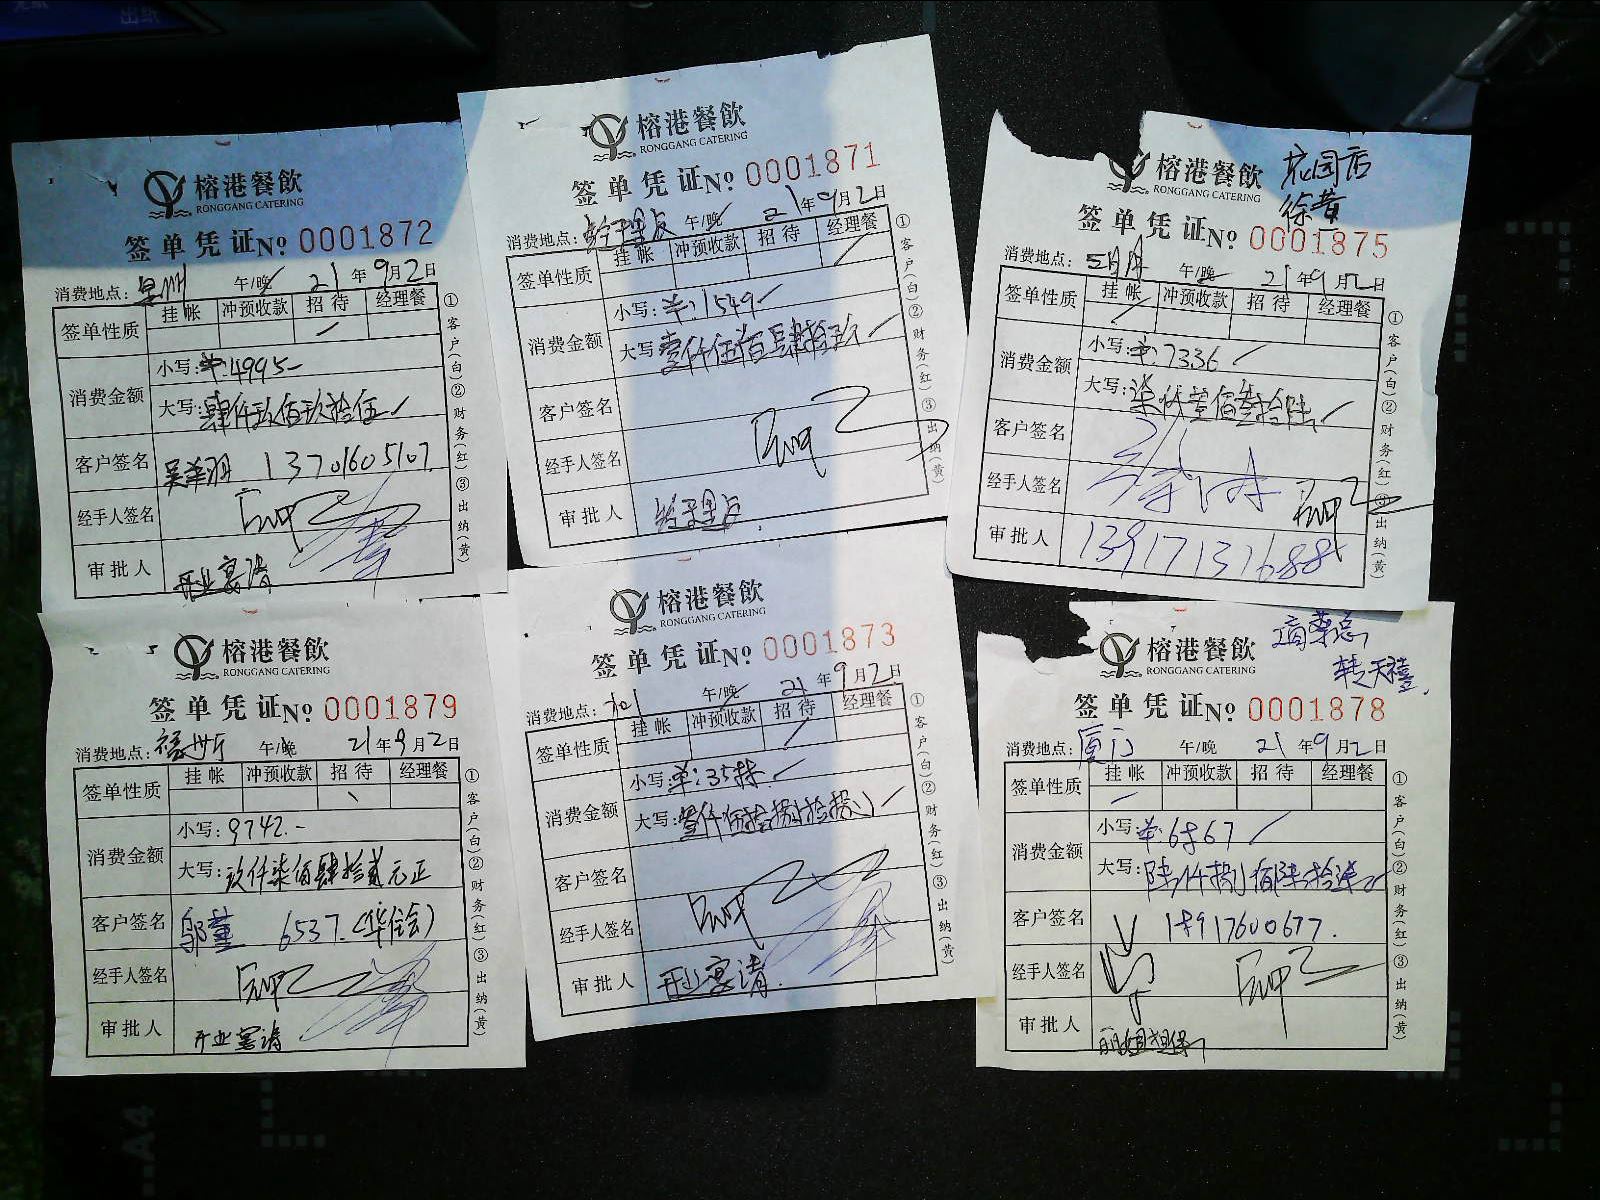 出纳
榕港餐飲
RONGGANG CATERING
签单凭证№ 0001872
消费地点：泉州 午/晚 21年9月2日
签单性质 挂帐 冲预收款 招待 经理餐
消费金额 小写：4995-
大写：肆仟玖佰玖拾伍
客户签名 13701605107
经手人签名
审批人 开业宴请
①客户(白)②财务(红)③出纳(黄)
榕港餐飲
RONGGANG CATERING
签单凭证№ 0001871
消费地点： 午/晚 21年9月2日
签单性质 挂帐 冲预收款 招待 经理餐
消费金额 小写：1549-
大写：壹仟伍佰肆拾玖
客户签名
经手人签名
审批人
①客户(白)②财务(红)③出纳(黄)
花园店
徐黄
榕港餐飲
RONGGANG CATERING
签单凭证№ 0001875
消费地点： 午/晚 21年9月2日
签单性质 挂帐 冲预收款 招待 经理餐
消费金额 小写：7336
大写：柒仟叁佰叁拾陆
客户签名
经手人签名
审批人 13917131688
①客户(白)②财务(红)③出纳(黄)
榕港餐飲
RONGGANG CATERING
签单凭证№ 0001879
消费地点：福州厅 午/晚 21年9月2日
签单性质 挂帐 冲预收款 招待 经理餐
消费金额 小写：9742.-
大写：玖仟柒佰肆拾贰元正
客户签名 邬董 6537.
经手人签名
审批人 开业宴请
①客户(白)②财务(红)③出纳(黄)
榕港餐飲
RONGGANG CATERING
签单凭证№ 0001873
消费地点： 午/晚 21年9月2日
签单性质 挂帐 冲预收款 招待 经理餐
消费金额 小写：
大写：
客户签名
经手人签名
审批人 开业宴请
①客户(白)②财务(红)③出纳(黄)
转天禧
榕港餐飲
RONGGANG CATERING
签单凭证№ 0001878
消费地点：厦门 午/晚 21年9月2日
签单性质 挂帐 冲预收款 招待 经理餐
消费金额 小写：6867
大写：陆仟捌佰陆拾柒
客户签名 18917600677.
经手人签名
审批人 丽姐担保
①客户(白)②财务(红)③出纳(黄)
A4